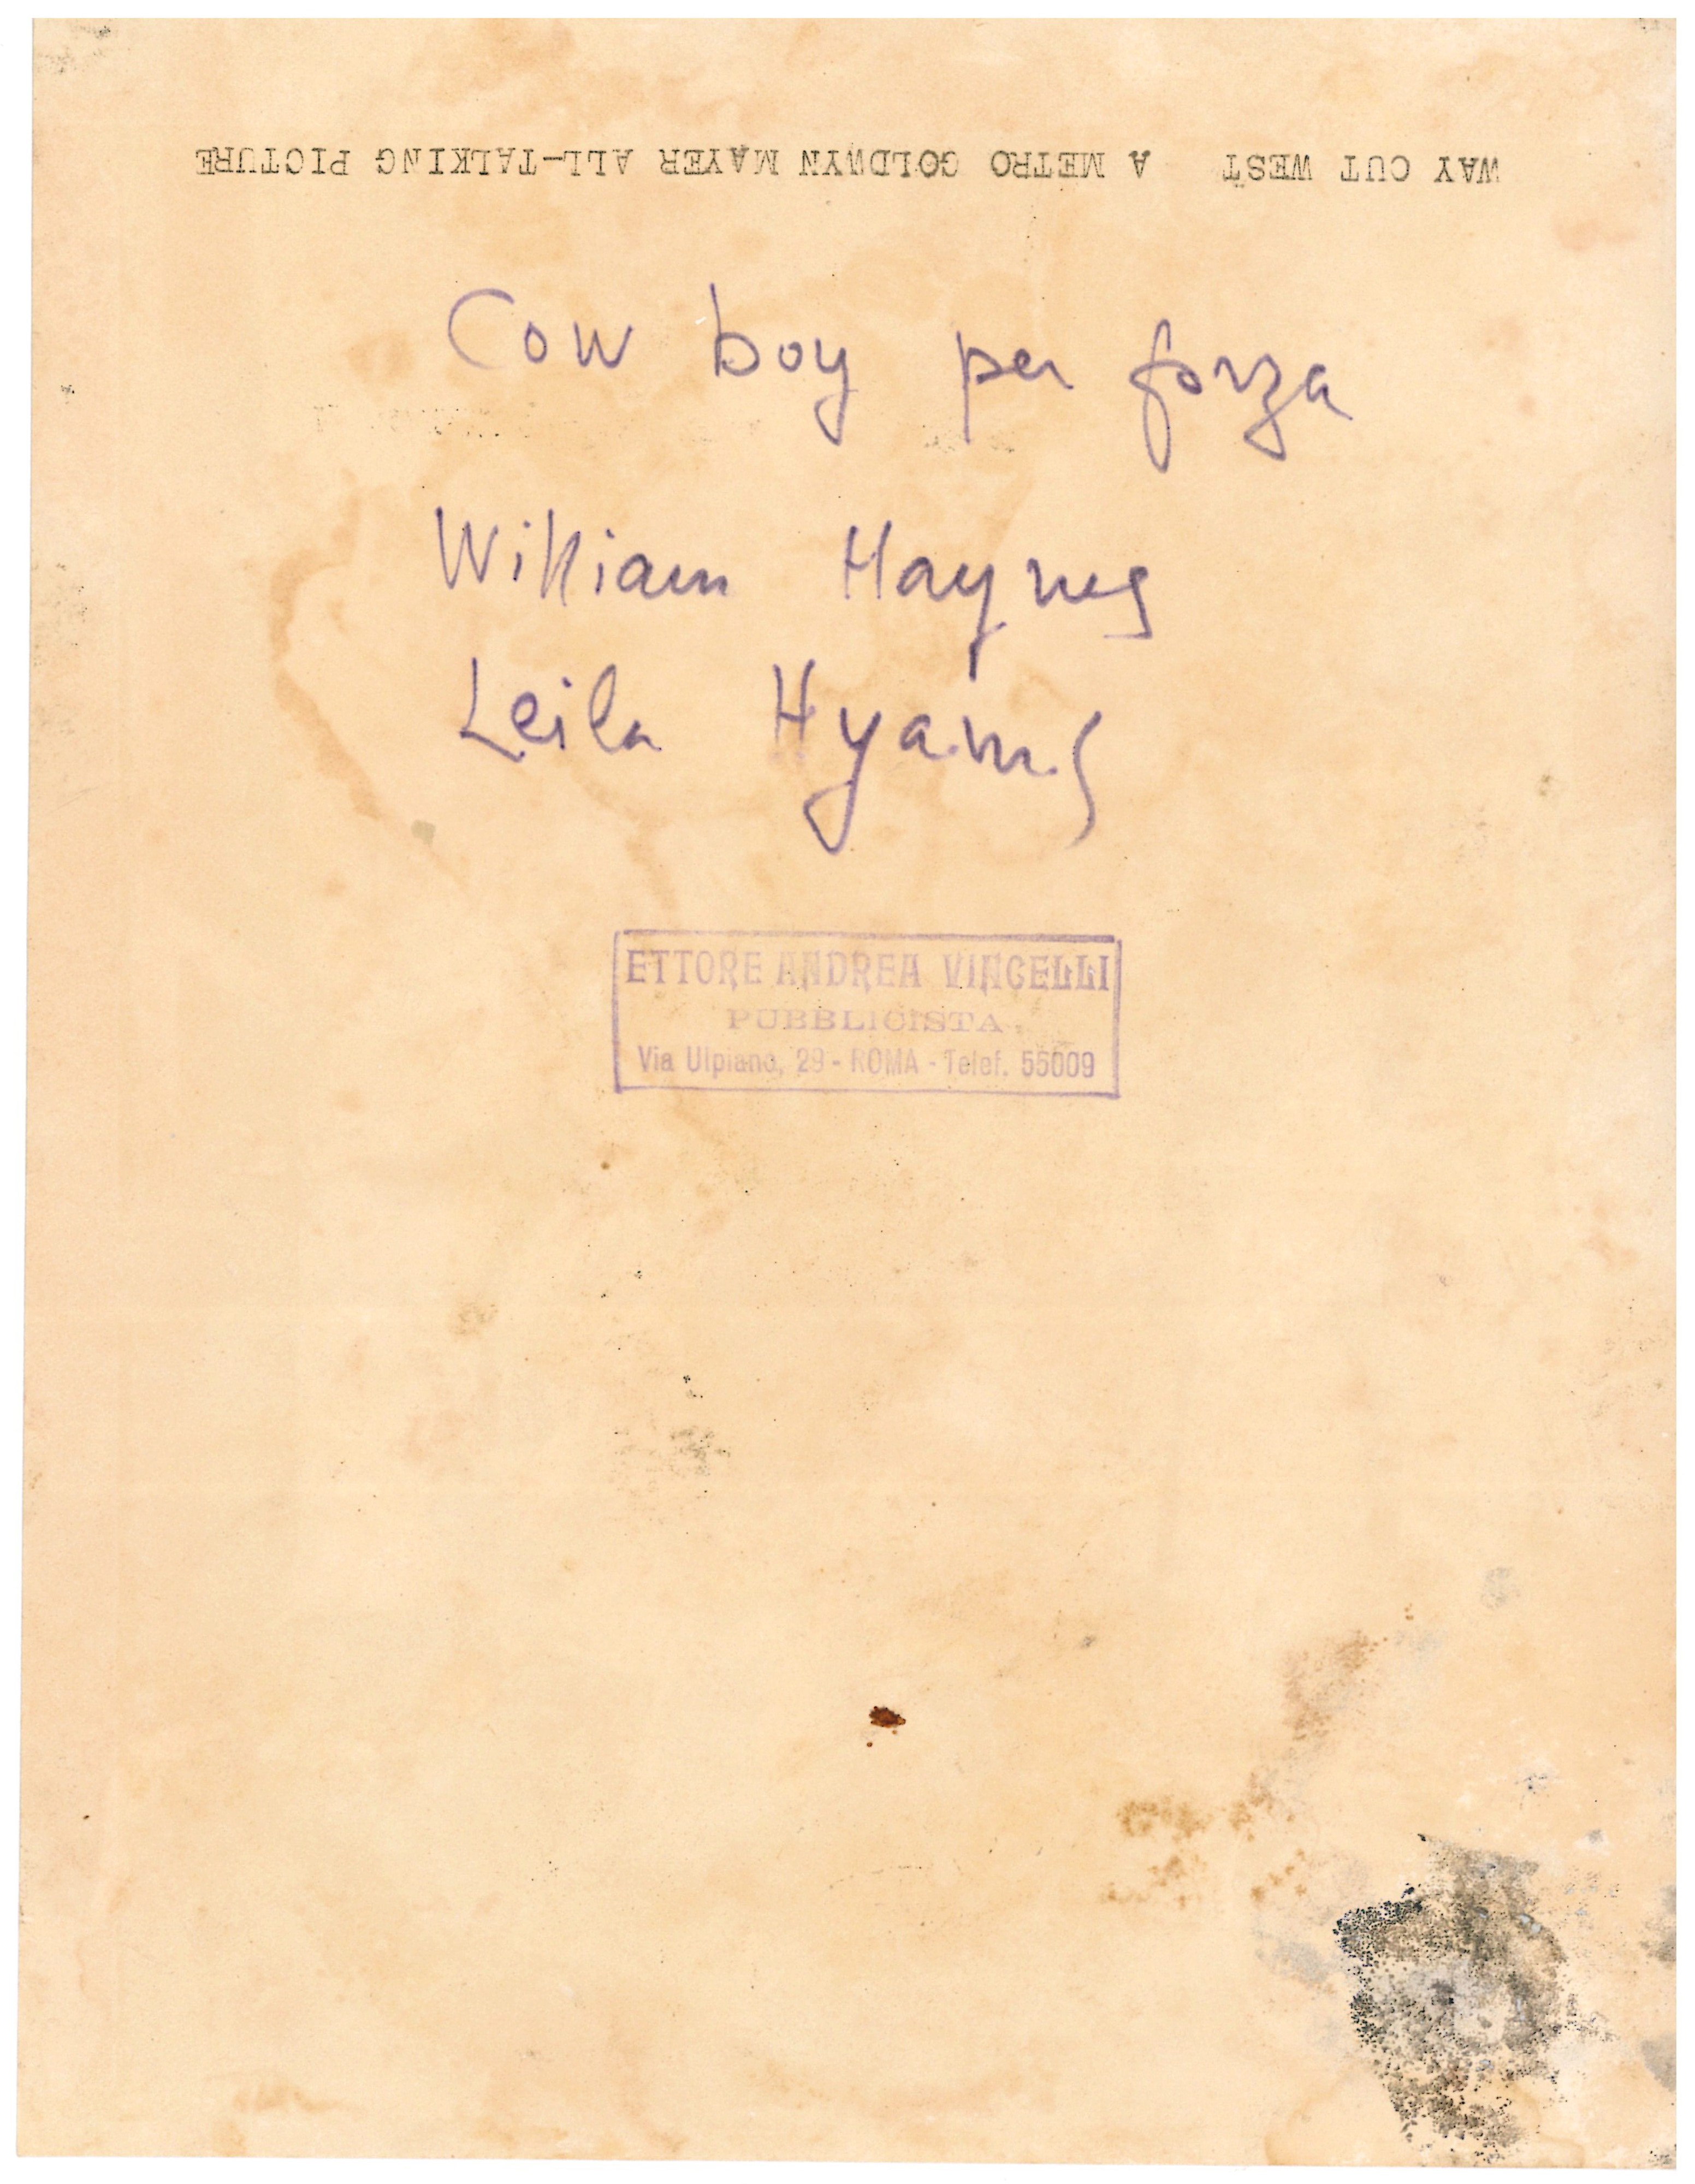 WAY OUT WEST   A METRO GOLDWYN MAYER ALL-TALKING PICTURE
Cow boy per forza
William Haynes
Leila Hyams
ETTORE ANDREA VINCELLI
PUBBLICISTA
Via Ulpiano, 29 - ROMA - Telef. 55009